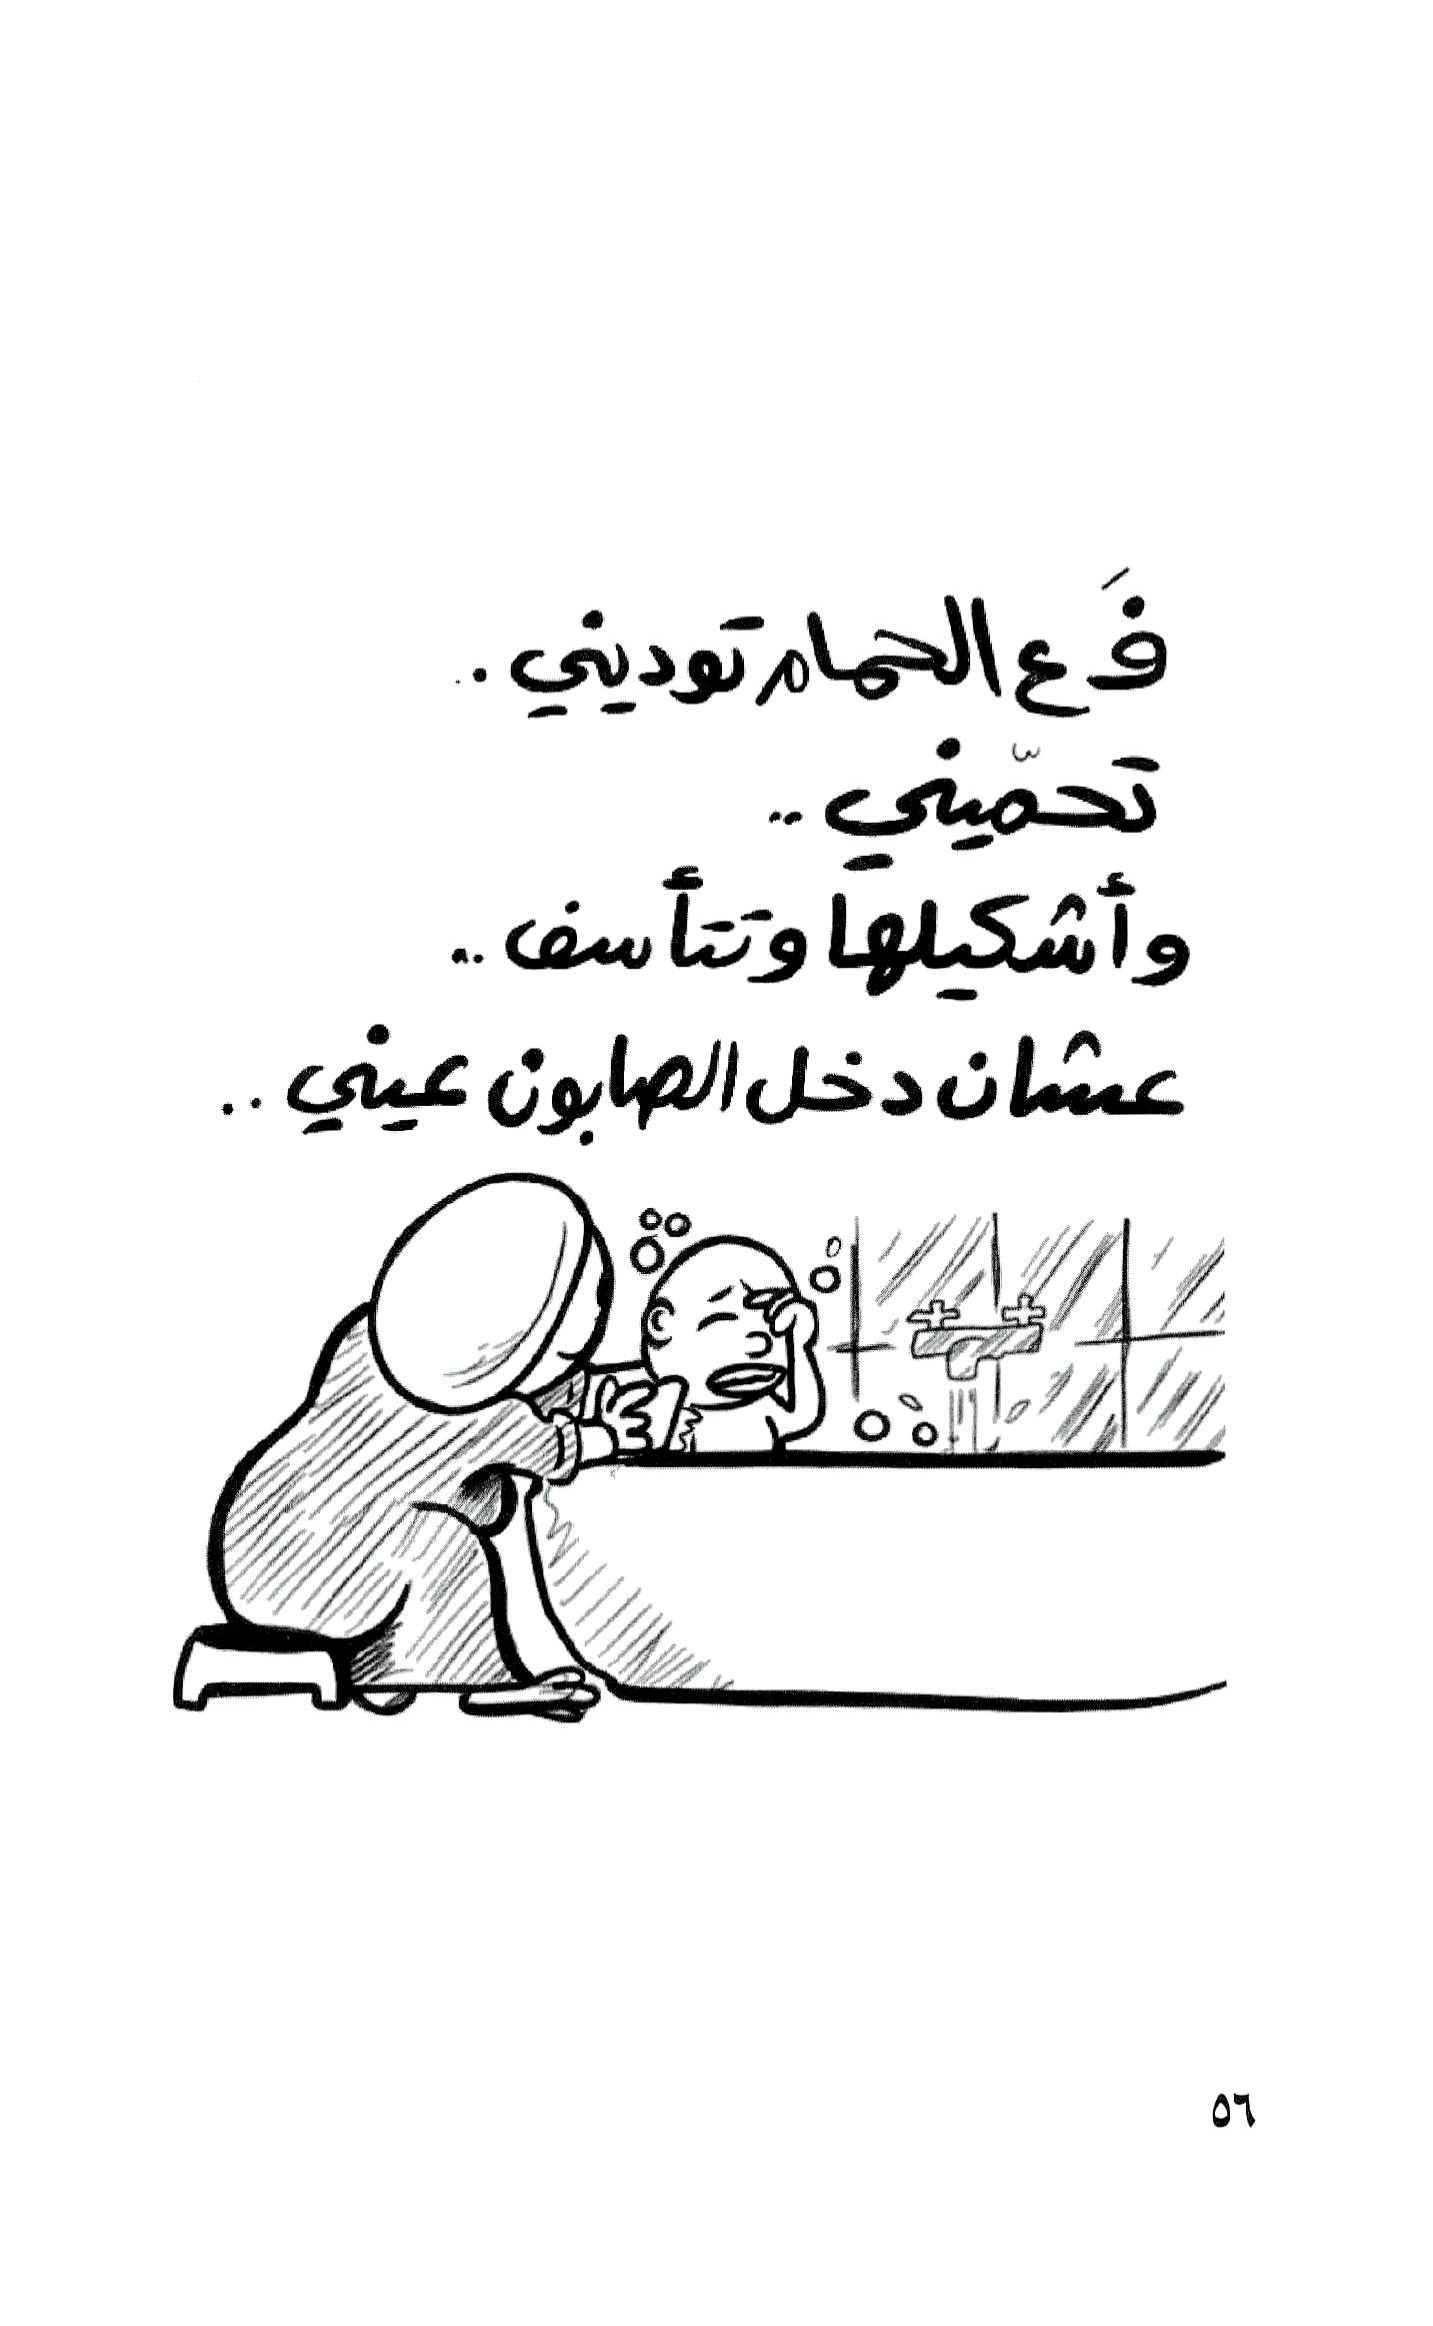 فَ ع الحمام توديني ..
تحمّيني ..
وأشكيلها وتتأسف ..
عشان دخل الصابون عيني ..
٥٦